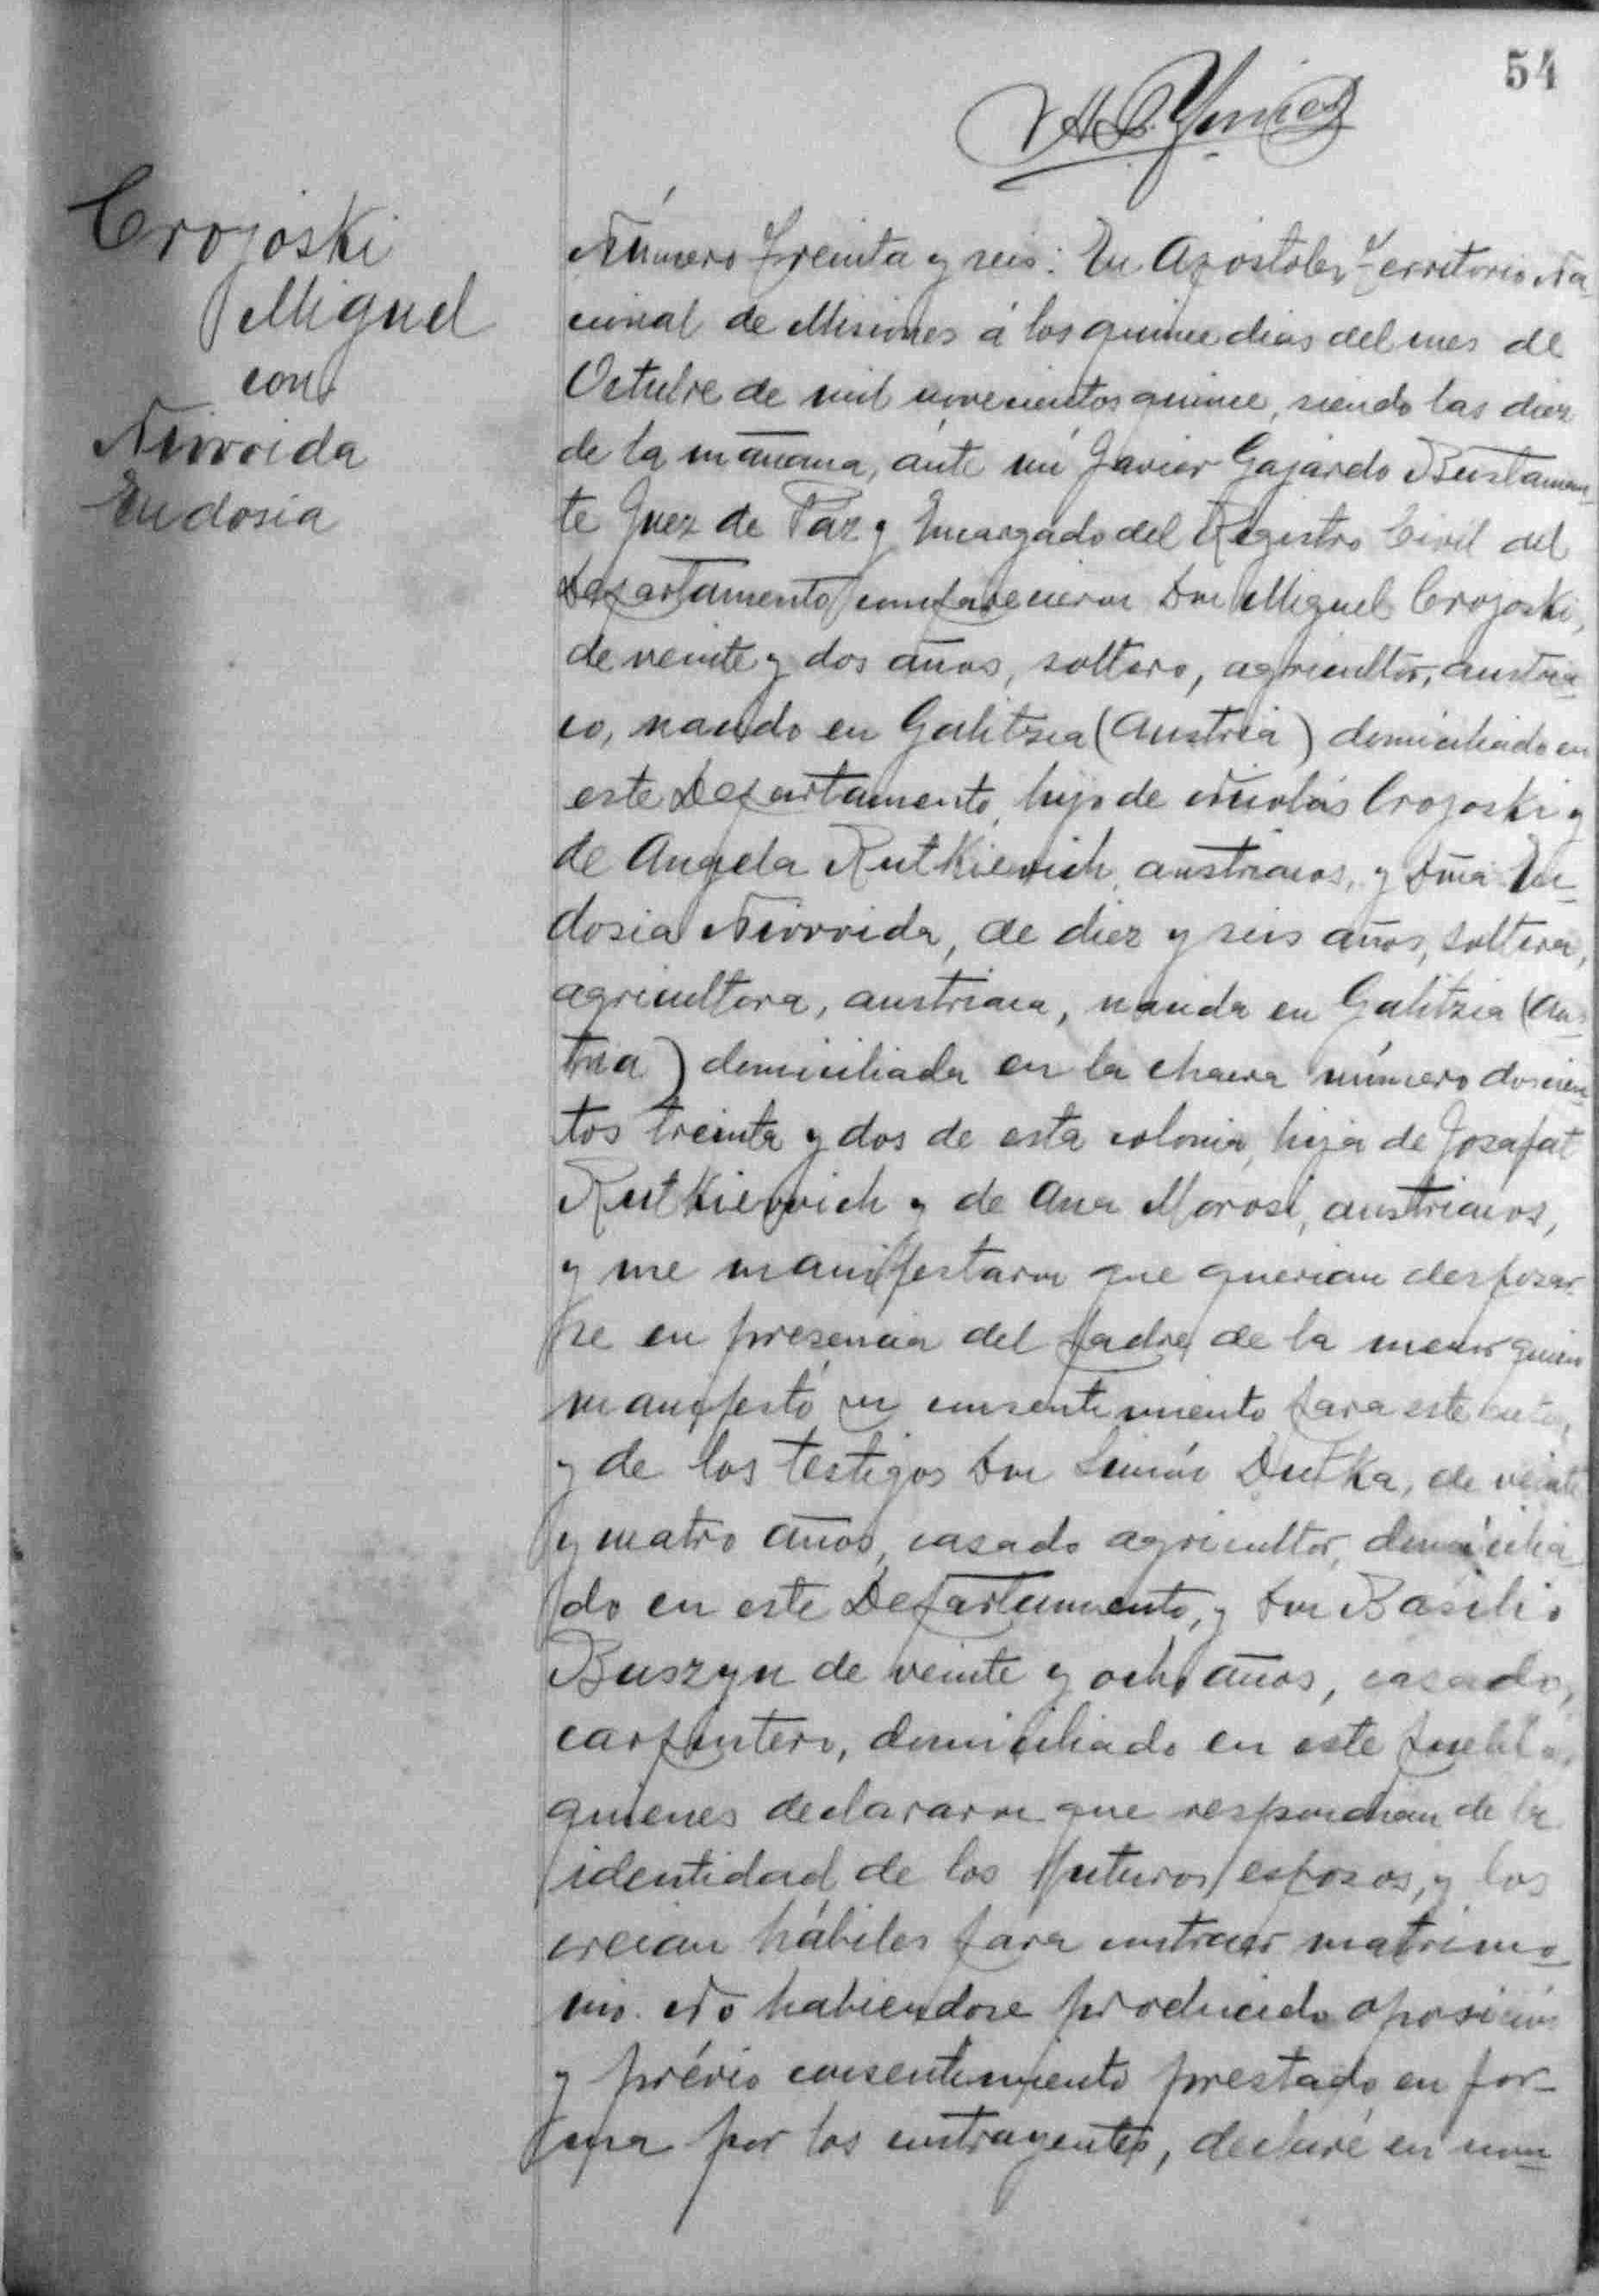 54
Crojoski
Miguel
con
Nivroida
Eudosia
Número Treinta y seis: En Apóstoles, Territorio Na-
cional de Misiones á los quince dias del mes de
Octubre de mil novecientos quince, siendo las diez
de la mañana, ánte mí Javier Gajardo Bustaman-
te Juez de Paz y Encargado del Registro Civil del
Departamento comparecieron Don Miguel Crojoski,
de veinte y dos años, soltero, agricultor, austria-
co, nacido en Galitzia (Austria) domiciliado en
este Departamento, hijo de Nicolás Crojoski y
de Angela Rutkievich, austriacos, y Dña Eu-
dosia Nivroida, de diez y seis años, soltera,
agricultora, austriaca, nacida en Galitzia (Aus-
tria) domiciliada en la chacra número doscien-
tos treinta y dos de esta colonia, hija de Josafat
Rutkievich y de Ana Morosi, austriacos,
y me manifestaron que querian desposar-
se en presencia del padre de la menor quien
manifestó su consentimiento para este acto,
y de los testigos Don Simón Dutka, de veinte
y cuatro años, casado agricultor, domicilia-
do en este Departamento, y Don Basilio
Buszyn de veinte y ocho años, casado,
carpintero, domiciliado en este pueblo,
quienes declararon que respondian de la
identidad de los futuros esposos, y los
creian hábiles para contraer matrimo-
nio. No habiendose producido oposición
y prévio consentimiento prestado en for-
ma por los contrayentes, declaré en nom-